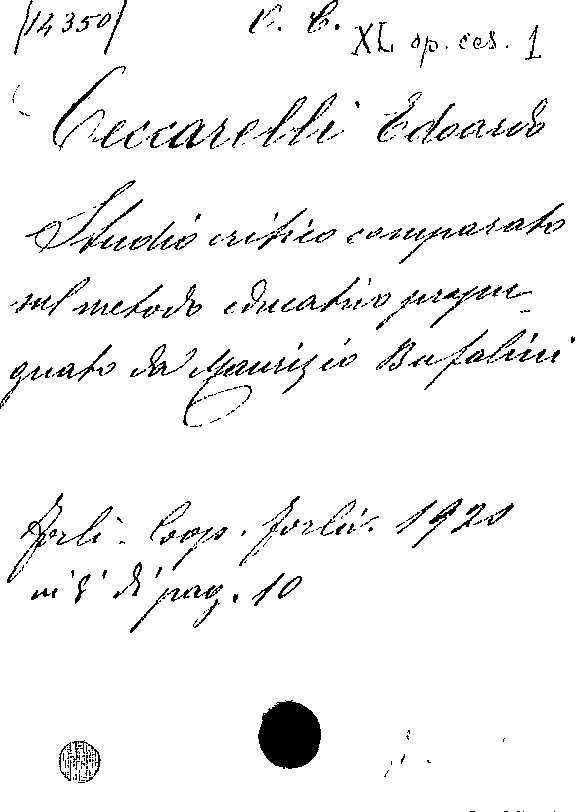 (14350) C. C. XL op. ces. 1
Ceccarelli Edoardo
Studio critico comparato
sul metodo educativo propu-
gnato da Maurizio Bufalini
Forlì - Coop. Forliv. 1921
in 8° di pag. 10